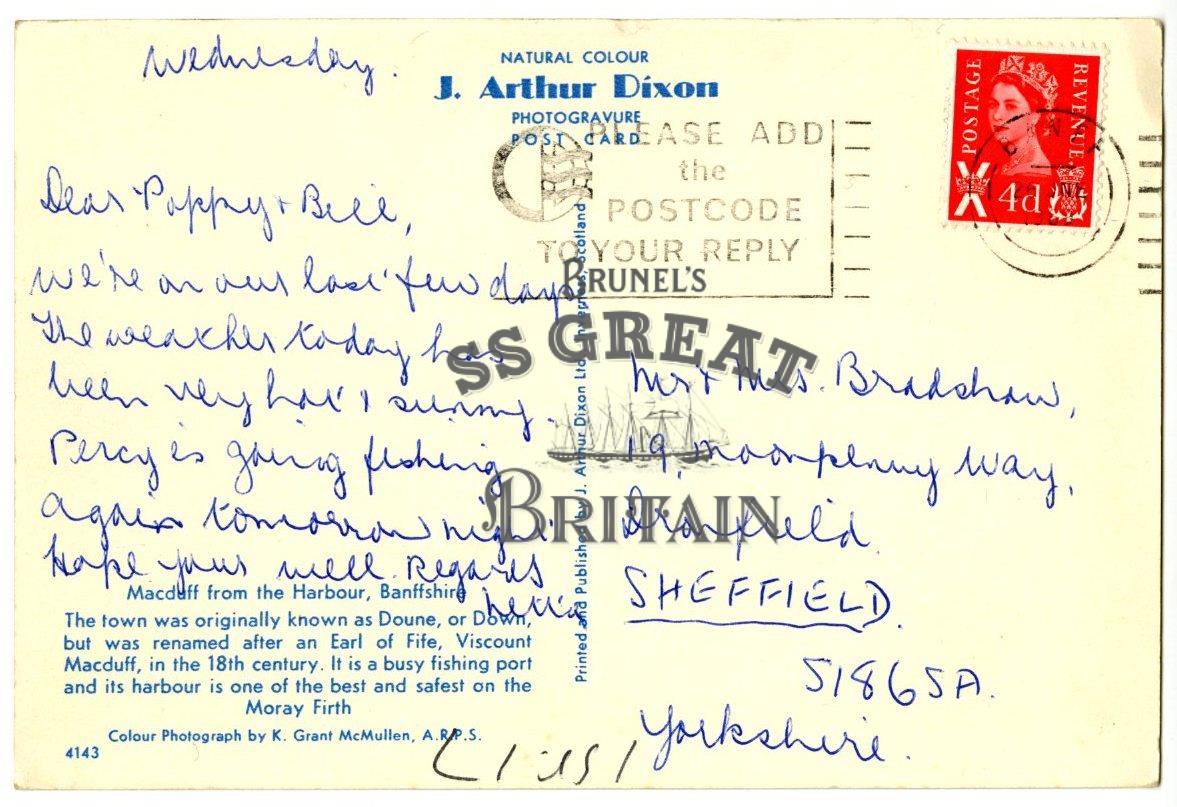 Wednesday.
NATURAL COLOUR
J. Arthur Dixon
PHOTOGRAVURE
POST CARD
POSTAGE
REVENUE
4d
PLEASE ADD
the
POSTCODE
TO YOUR REPLY
Dear Poppy + Bill,
We're on our last few days
The weather today has
been very hot & sunny.
Percy is going fishing
again tomorrow night
Hope your well. Regards
Macduff from the Harbour, Banffshire
The town was originally known as Doune, or Down,
but was renamed after an Earl of Fife, Viscount
Macduff, in the 18th century. It is a busy fishing port
and its harbour is one of the best and safest on the
Moray Firth
Colour Photograph by K. Grant McMullen, A.R.P.S.
4143
Printed and Published by J. Arthur Dixon Ltd., Inverness, Scotland
BRUNEL'S
SS GREAT
BRITAIN
Mr + Mrs. Bradshaw,
19, Moonpenny Way,
Dronfield.
SHEFFIELD.
S18 6SA.
Yorkshire.